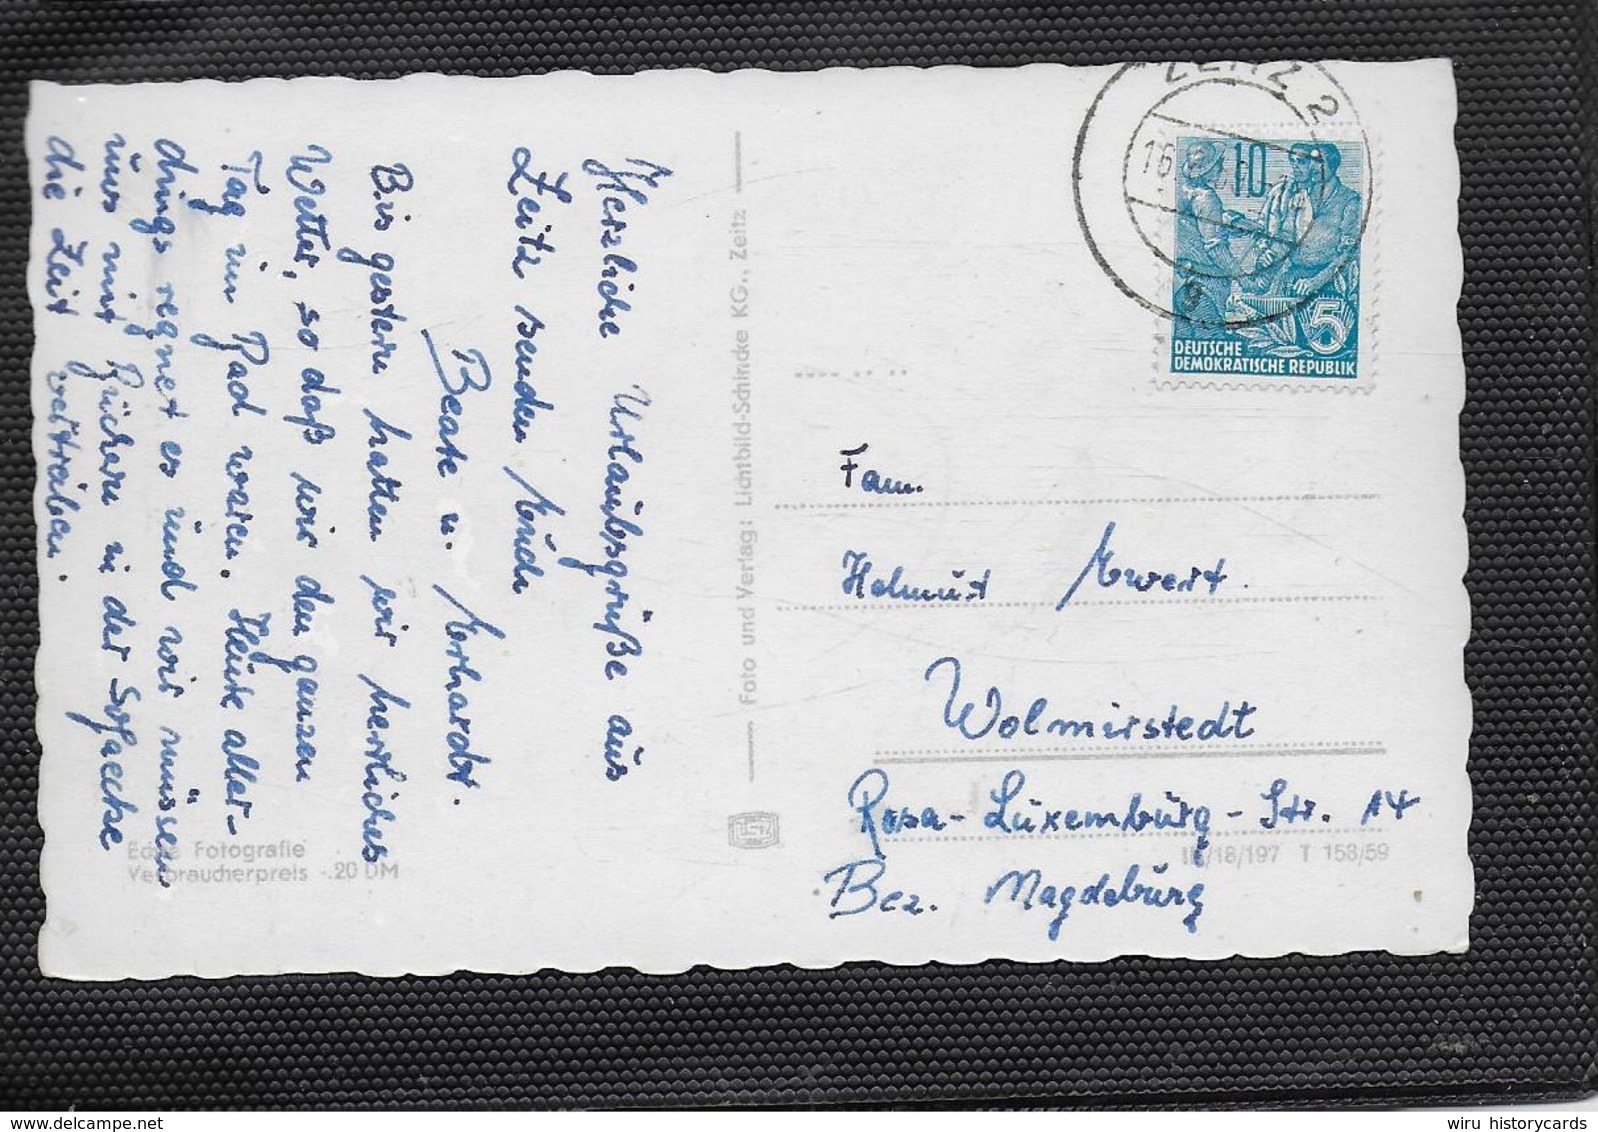 Herzliche Urlaubsgrüße aus
Zeitz senden Euch
Beate u. Erhardt.
Bis gestern hatten wir herrliches
Wetter, so daß wir den ganzen
Tag im Bad waren. Heute aller-
dings regnet es und wir müssen
uns mit Büchern in der Sofaecke
die Zeit vertreiben.
Echte Fotografie
Verbraucherpreis -.20 DM
Foto und Verlag: Lichtbild-Schincke KG., Zeitz
ZEITZ 2
16.
10
5
DEUTSCHE
DEMOKRATISCHE REPUBLIK
Fam.
Helmut Ewert
Wolmirstedt
Rosa-Luxemburg-Str. 14
/18/197 T 158/59
Bez. Magdeburg
wiru historycards